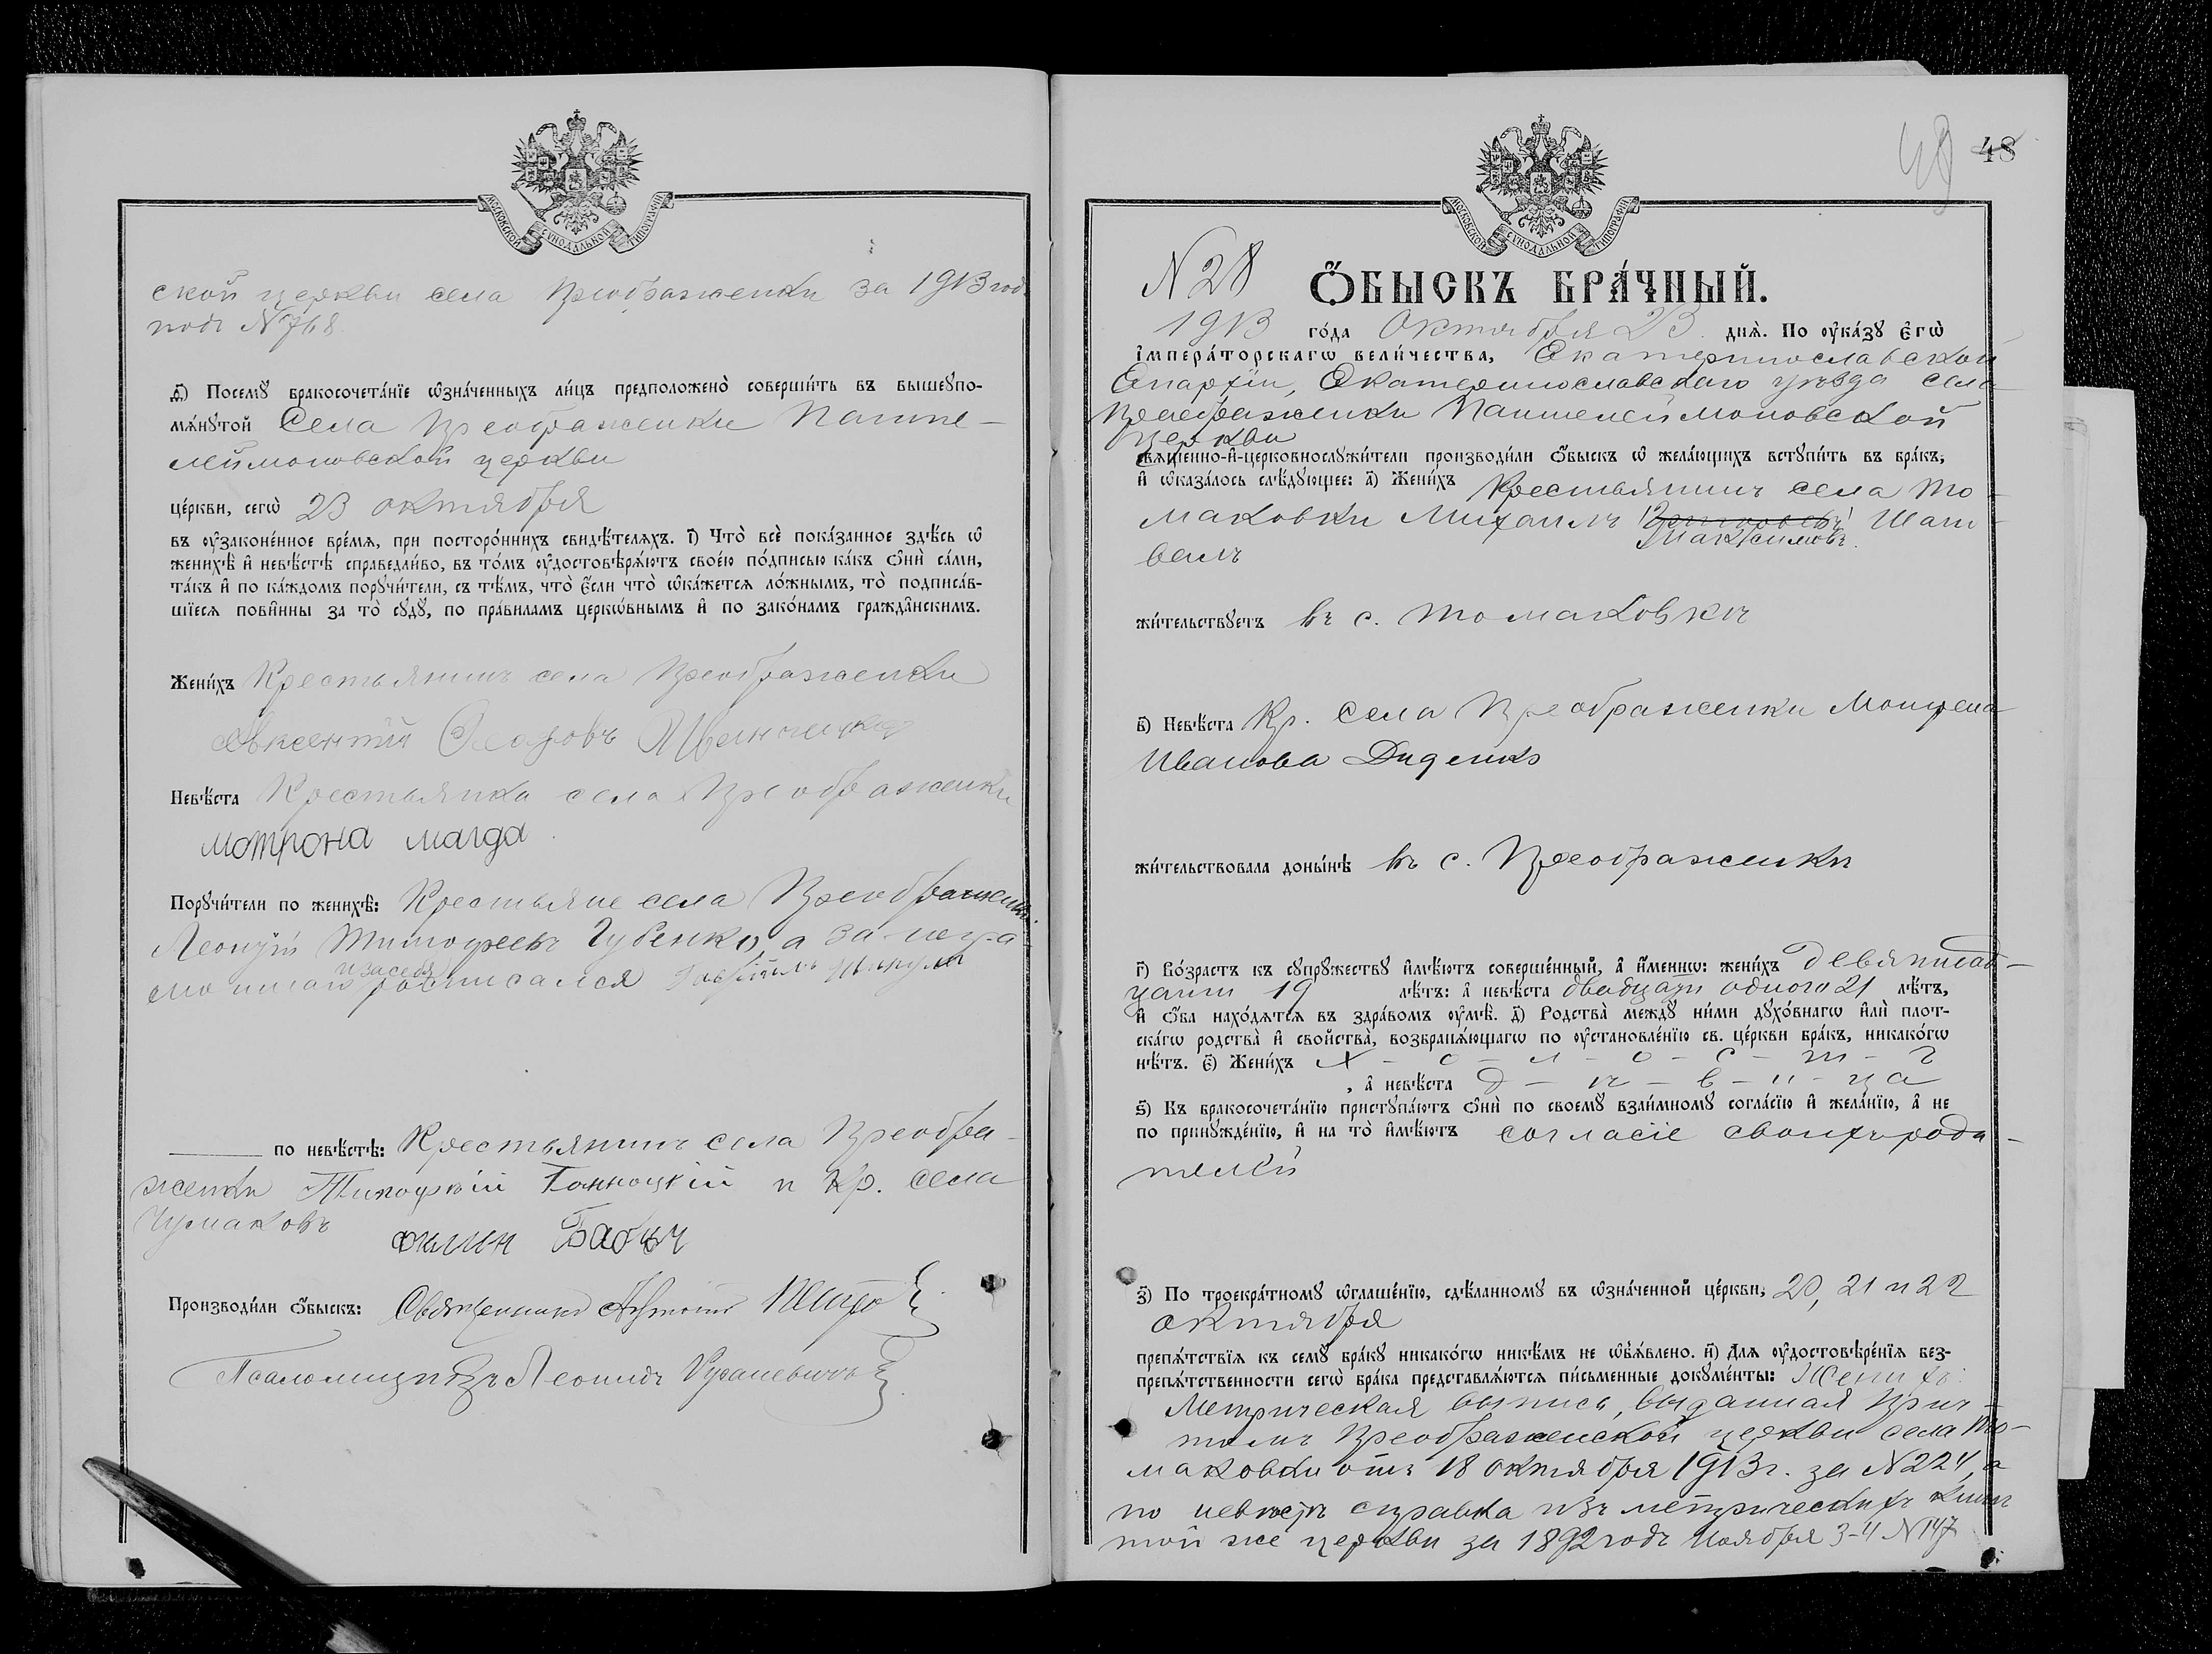 МОСКОВСКОЙ СУНОДАЛЬНОЙ ТИПОГРАФІИ
ской церкви села Преображенки за 1913 годъ
подъ N 768.
д҃) Посемꙋ̀ бракосочета́нїе ѡ҆зна́ченныхъ ли́цъ предположено̀ соверши́ть въ вышеꙋпо-
мѧ́нꙋтой Села Преображенки Панте-
леймоновской церкви
це́ркви, сегѡ̀ 23 октября
въ ᲂу҆зако́ненное вре́мѧ, при посторо́ннихъ свидѣ́телѧхъ. і҃) Что̀ всѐ пока́занное здѣ́сь ѡ҆
женихѣ̀ и҆ невѣ́стѣ справедли́во, въ то́мъ ᲂу҆достовѣрѧ́ютъ свое́ю по́дписью ка́къ ѻ҆нѝ са́ми,
та́къ и҆ по ка́ждомъ порꙋчи́тели, съ тѣ́мъ, что̀ є҆́сли что̀ ѡ҆ка́жетсѧ ло́жнымъ, то̀ подписа́в-
шїесѧ пови́нны за то̀ сꙋдꙋ̀, по пра́виламъ церкѡ́внымъ и҆ по зако́намъ гражда́нскимъ.
Жени́хъ Крестьянинъ села Преображенки
Авксентій
Невѣ́ста Крестьянка села Преображенки
мотрона магда
Порꙋчи́тели по женихѣ̀: Крестьяне села Преображенки
Леонтій Тимофеевъ Губенко, а за негра-
и за себя
мотнаго росписался Гавріилъ
по невѣ́стѣ: Крестьянинъ села Преобра-
женки Тимофѣй и кр. села
Чумаковъ
филип Бабыч
Производи́ли ѻ҆́быскъ: Священникъ
Псаломщикъ Леонидъ
48
48
МОСКОВСКОЙ СУНОДАЛЬНОЙ ТИПОГРАФІИ
N 28
Ѻ҆́БЫСКЪ БРА́ЧНЫЙ.
1913 го́да Октября 23 днѧ̀. По ᲂу҆ка́зꙋ є҆гѡ̀
і҆мпера́торскагѡ вели́чества, Екатеринославской
Епархіи, Екатеринославскаго уѣзда села
Преображенки Пантелеймоновской
церкви
свѧще́нно-и҆-церковнослꙋжи́тели производи́ли ѻ҆́быскъ ѡ҆ жела́ющихъ встꙋпи́ть въ бра́къ,
и҆ ѡ҆каза́лось слѣ́дꙋющее: а҃) Жени́хъ Крестьянинъ села То-
маковки Михаилъ Григорьевъ Шап-
Максимовъ
валъ
жи́тельствꙋетъ въ с. Томаковкѣ
в҃) Невѣ́ста Кр. села Преображенки Мотрена
Иванова Диденко
жи́тельствовала доны́нѣ въ с. Преображенки
г҃) Во́зрастъ къ сꙋпрꙋ́жествꙋ и҆мѣ́ютъ соверше́нный, а҆ и҆́меннѡ: жени́хъ девятнад-
цати 19 лѣ́тъ: а҆ невѣ́ста двадцати одного 21 лѣ́тъ,
и҆ ѻ҆́ба нахо́дѧтсѧ въ здра́вомъ ᲂу҆мѣ̀. д҃) Родства̀ междꙋ̀ ни́ми дꙋхо́внагѡ и҆лѝ плот-
ска́гѡ родства̀ и҆ свойства̀, возбранѧ́ющагѡ по ᲂу҆становле́нїю св. це́ркви бра́къ, никако́гѡ
нѣ́тъ. є҃) Жени́хъ х - о - л - о - с - т - ъ
, а҆ невѣ́ста д - ѣ - в - и - ца
ѕ҃) Къ бракосочета́нїю пристꙋпа́ютъ ѻ҆нѝ по своемꙋ̀ взаи́мномꙋ согла́сїю и҆ жела́нїю, а҆ не
по принꙋжде́нїю, и҆ на то̀ и҆мѣ́ютъ согласіе своихъ роди-
телей
з҃) По троекра́тномꙋ ѡ҆глаше́нїю, сдѣ́ланномꙋ въ ѡ҆зна́ченной це́ркви, 20, 21 и 22
октября
препѧ́тствїѧ къ семꙋ̀ бра́кꙋ никако́гѡ никѣ́мъ не ѡ҆б̾ѧ́влено. и҃) Длѧ ᲂу҆достовѣре́нїѧ без-
препѧ́тственности сегѡ̀ бра́ка представлѧ́ютсѧ пи́сьменные докꙋме́нты: Жених:
Метрическая выпись, выданная При-
томъ Преображенской церкви села То-
маковки отъ 18 октября 1913 г. за N 224, а
по невѣстѣ справка изъ метрическихъ книгъ
той же церкви за 1892 годъ Ноября 3-4 N 147